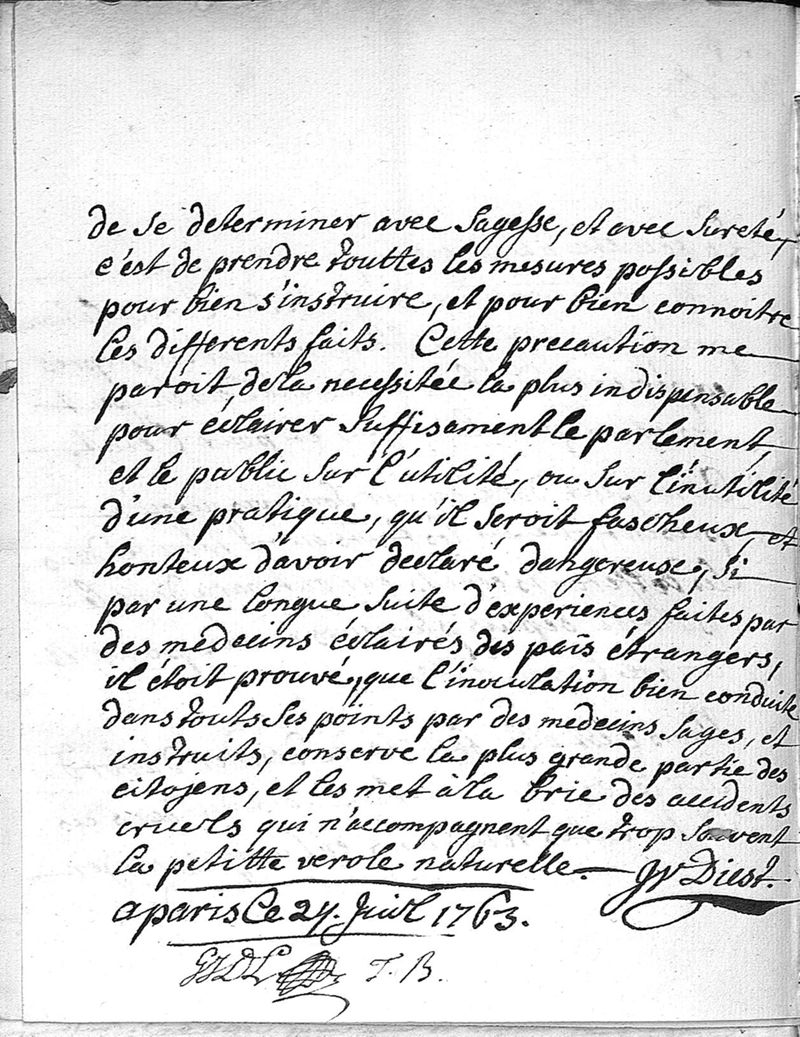 de se determiner avec sagesse, et avec sureté,
c'est de prendre touttes les mesures possibles
pour bien s'instruire, et pour bien connoitre
les differents faits. Cette precaution me
paroit, de la necessitée la plus indispensable
pour éclairer suffisament le parlement,
et le public sur l'utilité, ou sur l'inutilité
d'une pratique, qu'il seroit fascheux, et
honteux d'avoir declaré dangereuse, si
par une longue suite d'experiences faites par
des medecins éclairés des païs étrangers,
il étoit prouvé, que l'inoculation bien conduite
dans touts ses points par des medecins sages, et
instruits, conserve la plus grande partie des
citojens, et les met à la brie des accidents
cruels qui n'accompagnent que trop souvent
la petitte verole naturelle. JV Diest.
a paris le 24. Juil 1763.
T. B.